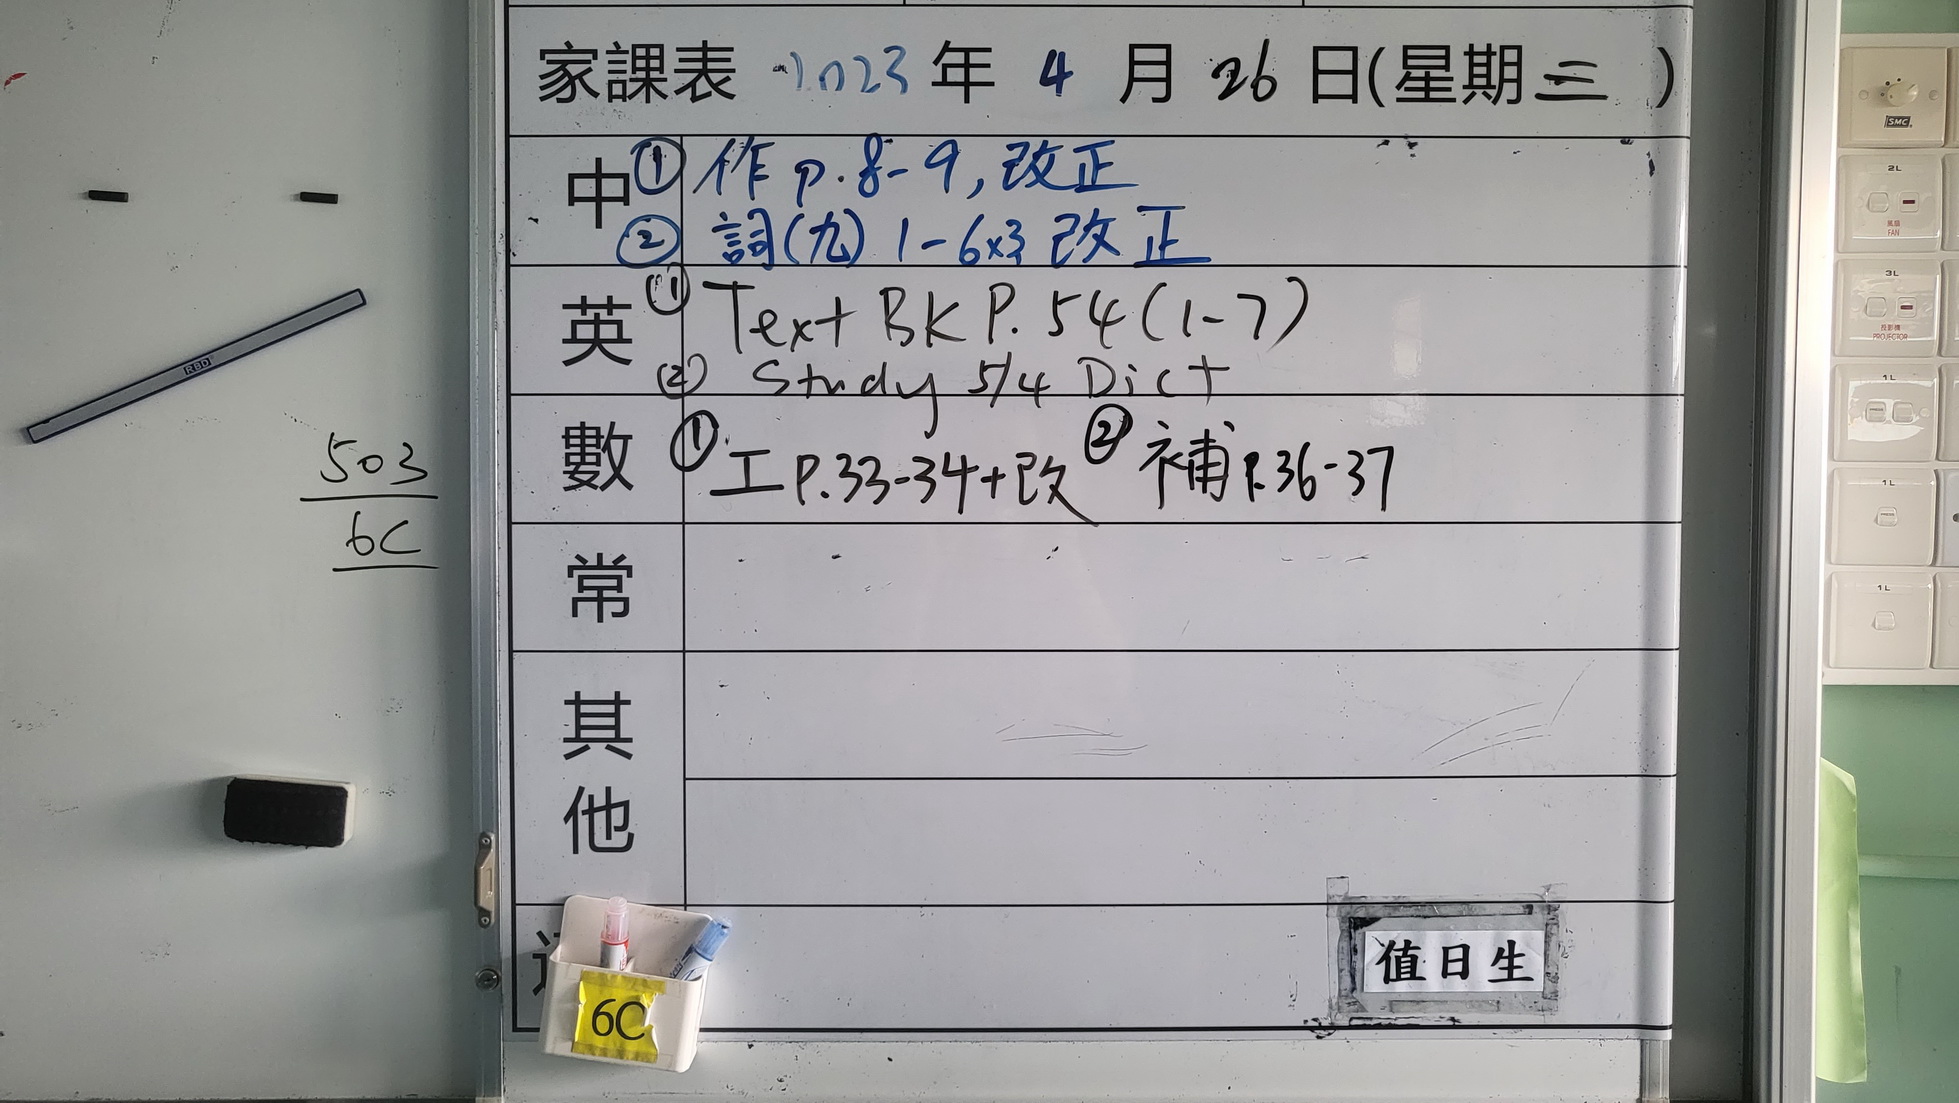 家課表 2023 年 4 月 26 日(星期三)
中 ① 作 p.8-9, 改正
② 詞(九) 1-6x3 改正
英 (1) Text BK P.54 (1-7)
(2) Study 5/4 Dict
數 ① 工 P.33-34+改 ② 補 P.36-37
常
其他
值日生
6C
503
6C
RBD
SMC
2L
風扇
FAN
3L
投影機
PROJECTOR
1L
1L
PRESS
1L